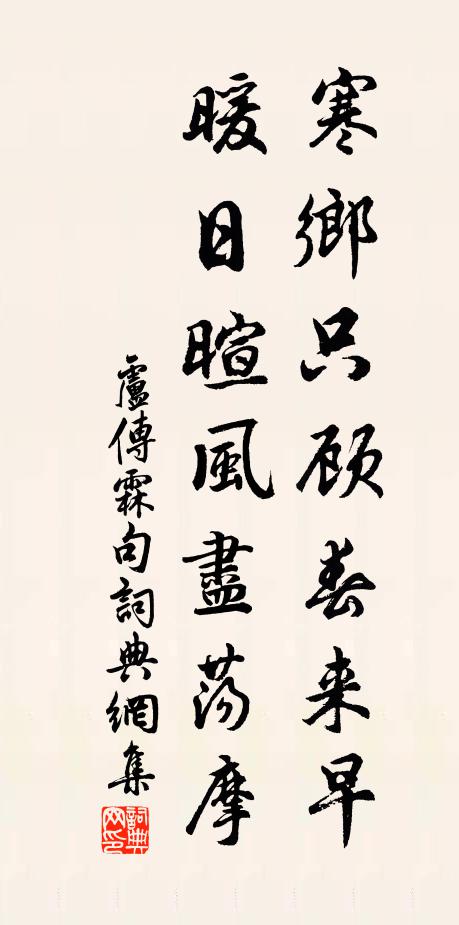 寒鄉只顾春来早
暖日暄風盡荡摩
盧傳霖句詞典網集
詞典網印